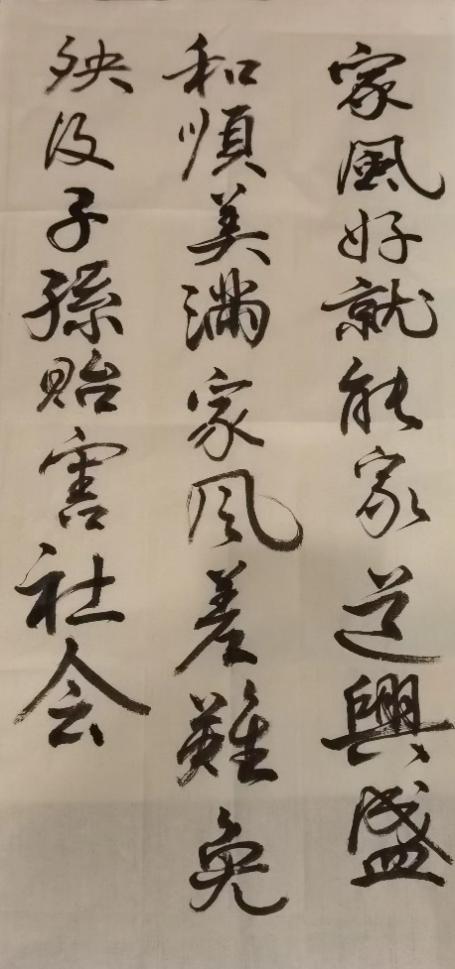 家風好就能家道興盛
和順美滿家风差難免
殃及子孫贻害社会